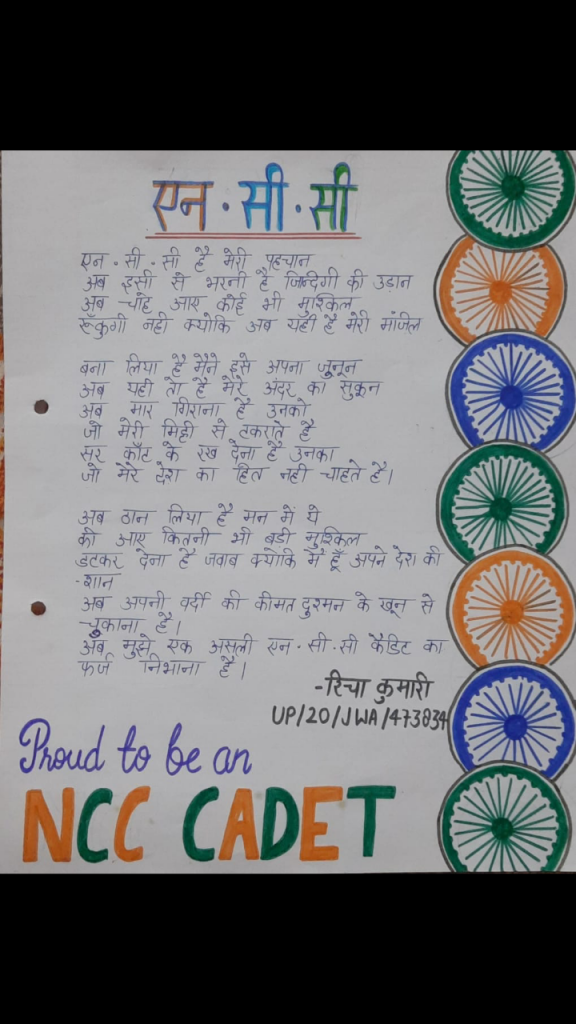 एन . सी . सी
एन . सी . सी है मेरी पहचान
अब इसी से भरनी है जिन्दिगी की उड़ान
अब चाहे आए कोई भी मुश्किल
रूँकुगी नही क्योकि अब यही है मेरी मंजिल
बना लिया है मैने इसे अपना जुनून
अब यही तो है मेरे अंदर का सुकून
अब मार गिराना है उनको
जो मेरी मिट्टी से टकराते है
सर काँट के रख देना है उनका
जो मेरे देश का हित नही चाहते है।
अब ठान लिया है मन में ये
की आए कितनी भी बडी मुश्किल
डटकर देना है जवाब क्योकि मैं हूँ अपने देश की
-शान
अब अपनी वर्दी की कीमत दुश्मन के खून से
चुकाना है।
अब मुझे एक असली एन . सी . सी कैडिट का
फर्ज निभाना है।
-रिचा कुमारी
UP/20/JWA/473834
Proud to be an
NCC CADET